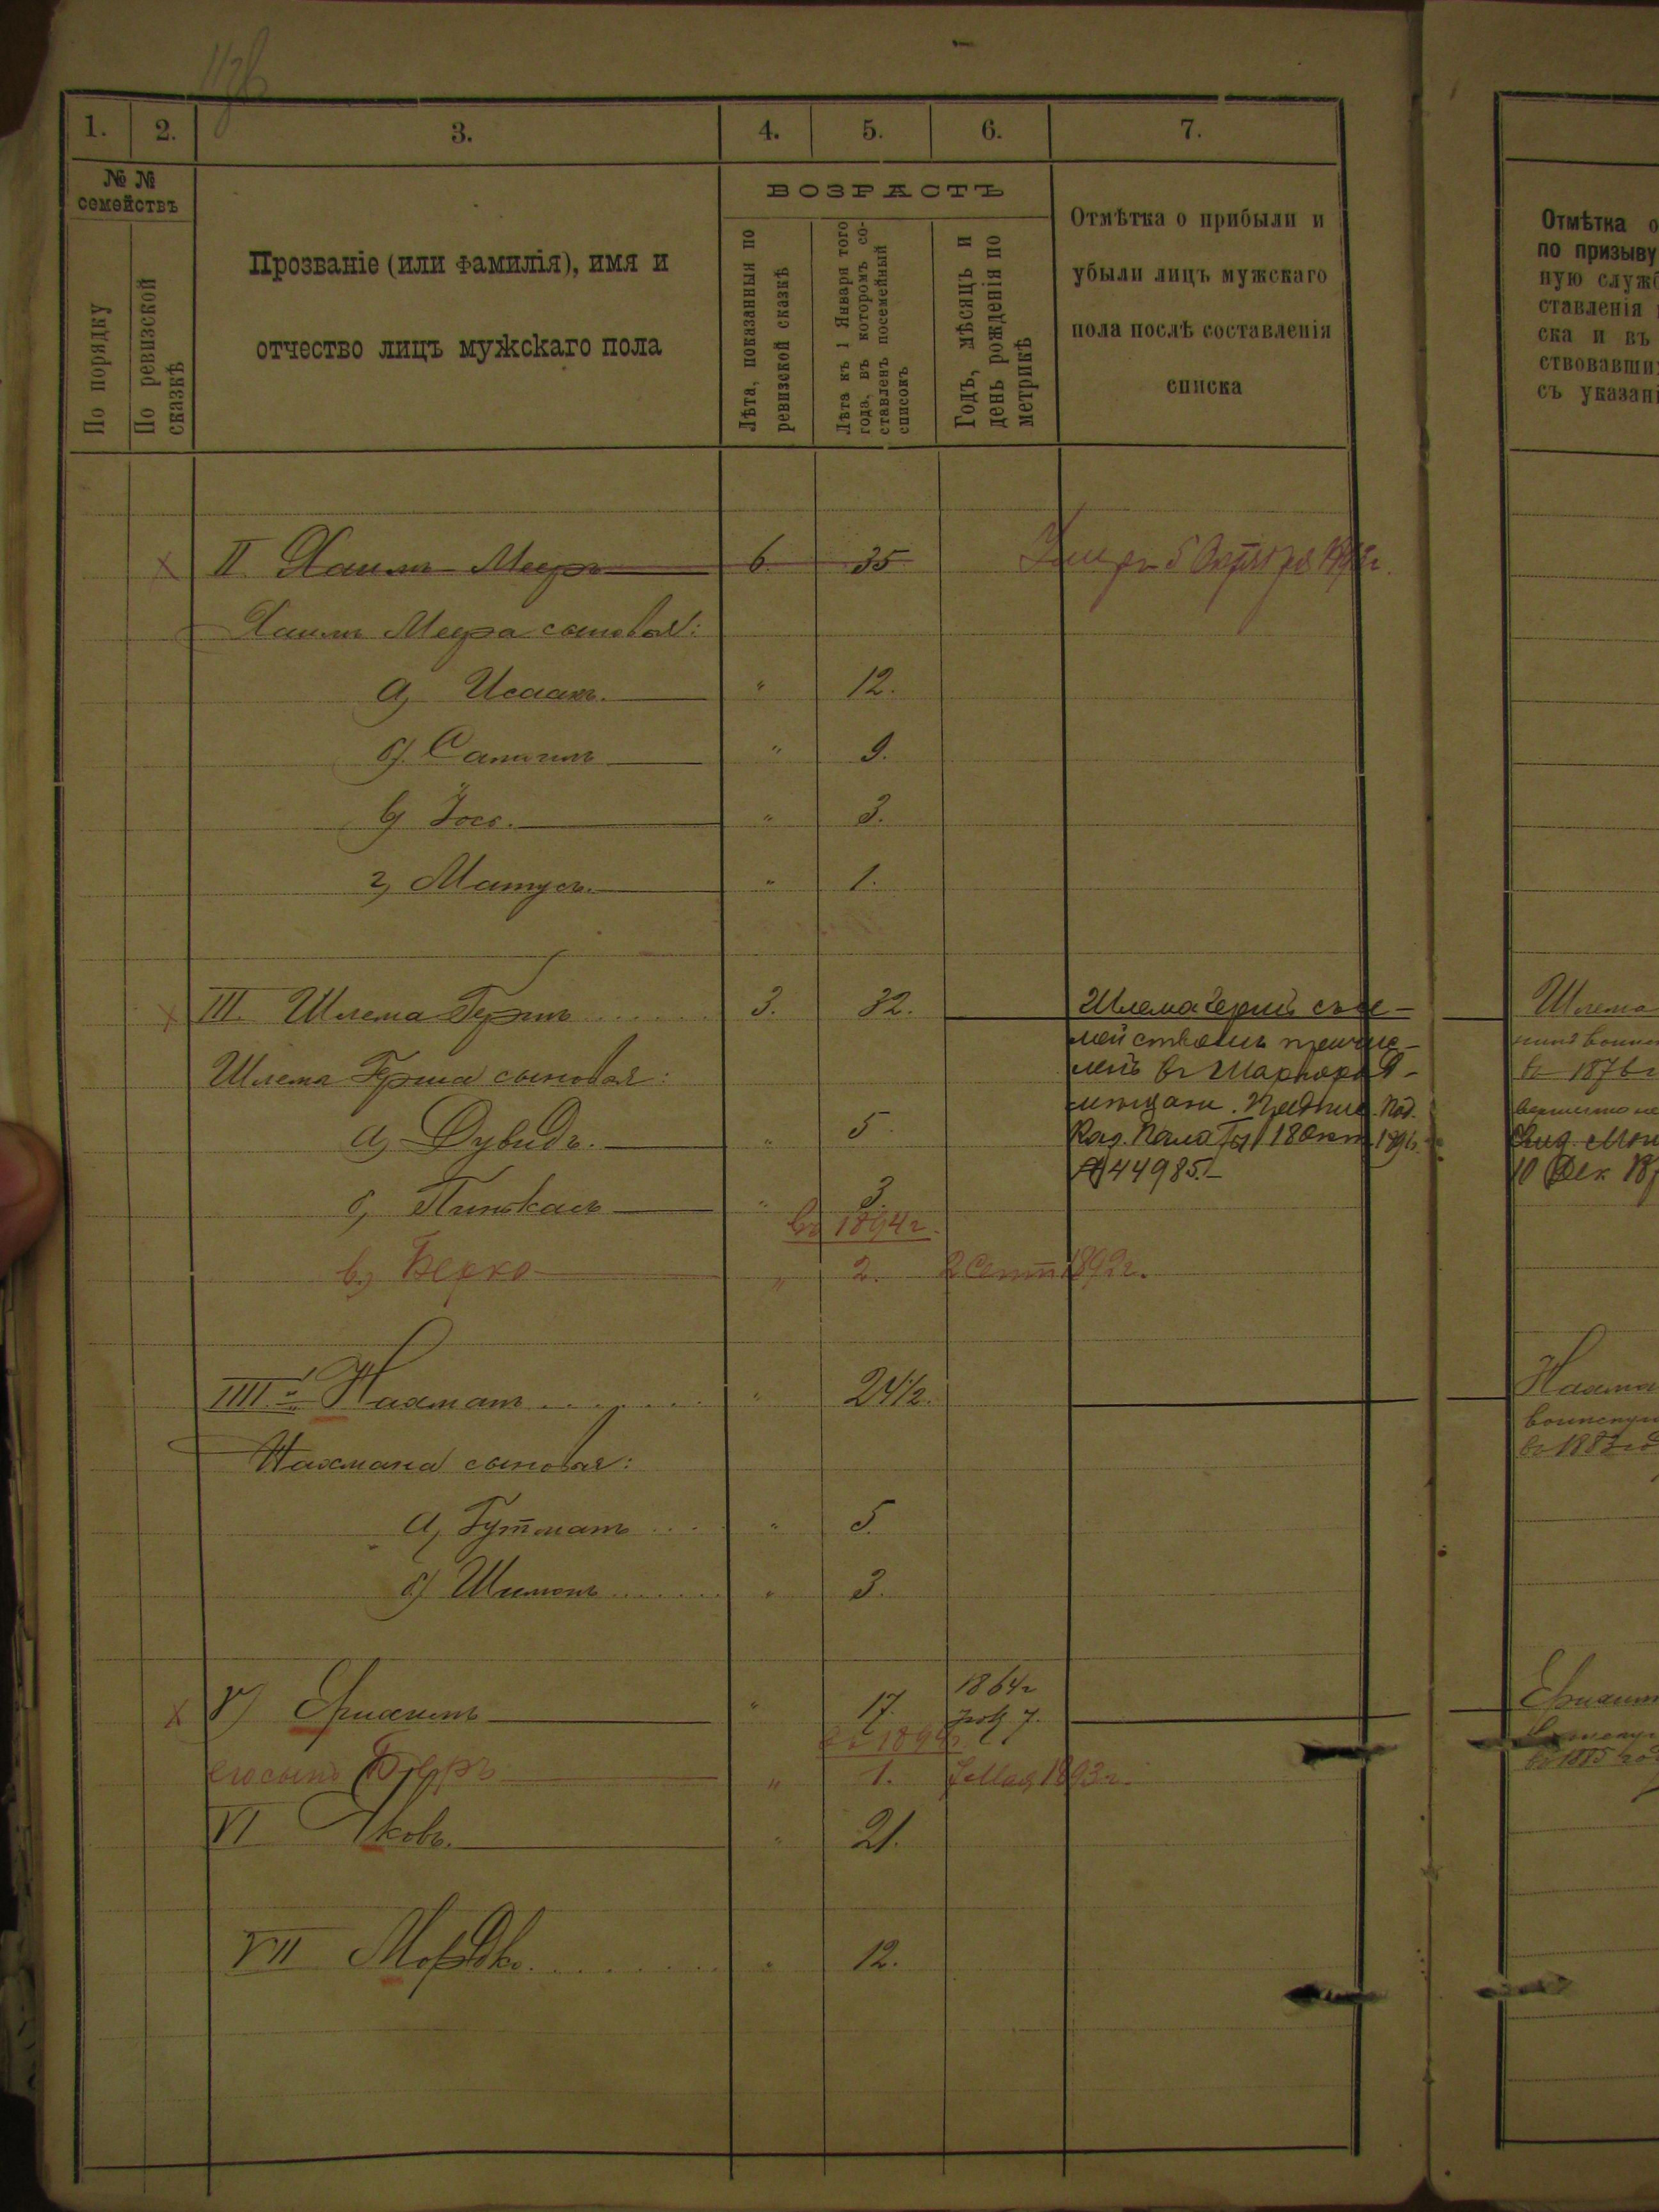 1.
2.
3.
4.
5.
6.
7.
№ №
семействъ
По порядку
По ревизской
сказкѣ
Прозваніе (или фамилія), имя и
отчество лицъ мужскаго пола
ВОЗРАСТЪ
Лѣта, показанныя по
ревизской сказкѣ
Лѣта къ 1 Января того
года, въ которомъ со-
ставленъ посемейный
списокъ
Годъ, мѣсяцъ и
день рожденія по
метрикѣ
Отмѣтка о прибыли и
убыли лицъ мужскаго
пола послѣ составленія
списка
II. Хаимъ-Мееръ 6. 35 Умеръ 5 Октября
Хаимъ Меера сыновья:
а, Исаакъ. " 12.
б). " 9.
в) Іосъ. " 3.
г, Матусъ. " 1.
III. Шлема Гершъ 3. 32. Шлема Герш съ се-
мействомъ причис-
ленъ въ Шаргород-
Шлема Герша сыновья:
мѣщане. Предпис. Под.
а, Дувидъ. " 5. Каз. Палаты 18 Окт.
№ 44985.
б, Пинькасъ " 3.
въ 1894 г.
в.) Берко " 2. 2 Сент 1892 г.
IIII. Нахманъ " 24 1/2.
Нахмана сыновья:
а, Гутманъ " 5.
б) Шимонъ " 3.
V) " 17. 1864 г
въ 1894 г.
его сынъ Беръ " 1. 7 Мая 1893 г.
VI Яковъ. " 21.
VII Мордко. " 12.
Отмѣтка о
по призыву
ную служб
ставленія
ска и въ
ствовавши
съ указан
Шлема
въ 1876 г
10 Дек
Нахма
воинскую
въ 1883 год
въ 1885 год